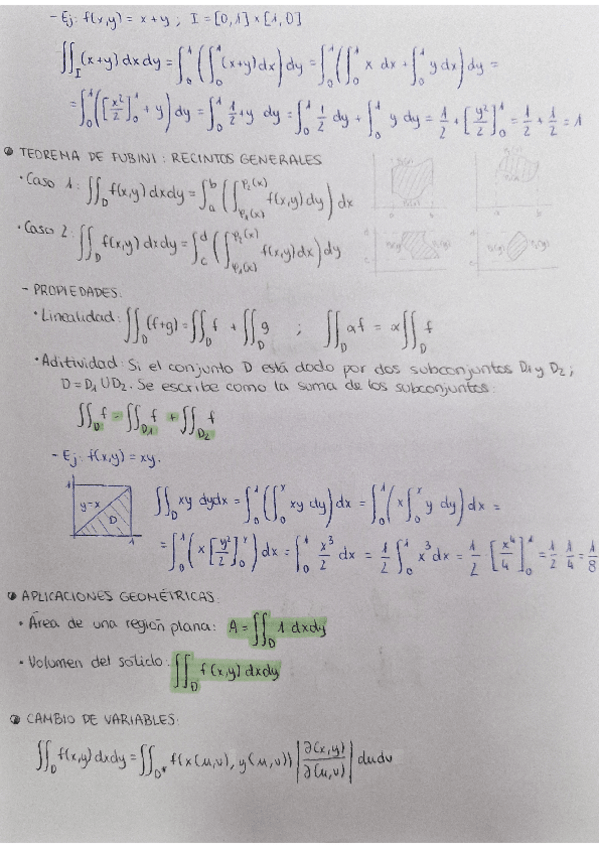 - Ej: f(x,y) = x+y ; I = [0,1] × [1,0]
∬_I (x+y) dx dy = ∫_0^1 (∫_0^1 (x+y) dx) dy = ∫_0^1 (∫_0^1 x dx + ∫_0^1 y dx) dy =
= ∫_0^1 ([x²/2]_0^1 + y) dy = ∫_0^1 1/2 + y dy = ∫_0^1 1/2 dy + ∫_0^1 y dy = 1/2 + [y²/2]_0^1 = 1/2 + 1/2 = 1
TEOREMA DE FUBINI: RECINTOS GENERALES
• Caso 1: ∬_D f(x,y) dxdy = ∫_a^b (∫_{φ₁(x)}^{φ₂(x)} f(x,y) dy) dx
• Caso 2: ∬_D f(x,y) dxdy = ∫_c^d (∫_{φ₁(x)}^{φ₂(x)} f(x,y) dx) dy
- PROPIEDADES:
• Linealidad: ∬_D (f+g) = ∬_D f + ∬_D g ; ∬_D αf = α∬_D f
• Aditividad: Si el conjunto D está dado por dos subconjuntos D₁ y D₂;
D = D₁ ∪ D₂. Se escribe como la suma de los subconjuntos:
∬_D f = ∬_{D1} f + ∬_{D2} f
- Ej: f(x,y) = xy.
1
y-x
D
1
∬_D xy dydx = ∫_0^1 (∫_0^x xy dy) dx = ∫_0^1 (x ∫_0^x y dy) dx =
= ∫_0^1 (x [y²/2]_0^x) dx = ∫_0^1 x³/2 dx = 1/2 ∫_0^1 x³ dx = 1/2 · [x⁴/4]_0^1 = 1/2 · 1/4 = 1/8
APLICACIONES GEOMÉTRICAS:
• Área de una región plana: A = ∬_D 1 dxdy
• Volumen del sólido: ∬_D f(x,y) dxdy
CAMBIO DE VARIABLES:
∬_D f(x,y) dxdy = ∬_{D*} f(x(u,v), y(u,v)) |∂(x,y)/∂(u,v)| dudv